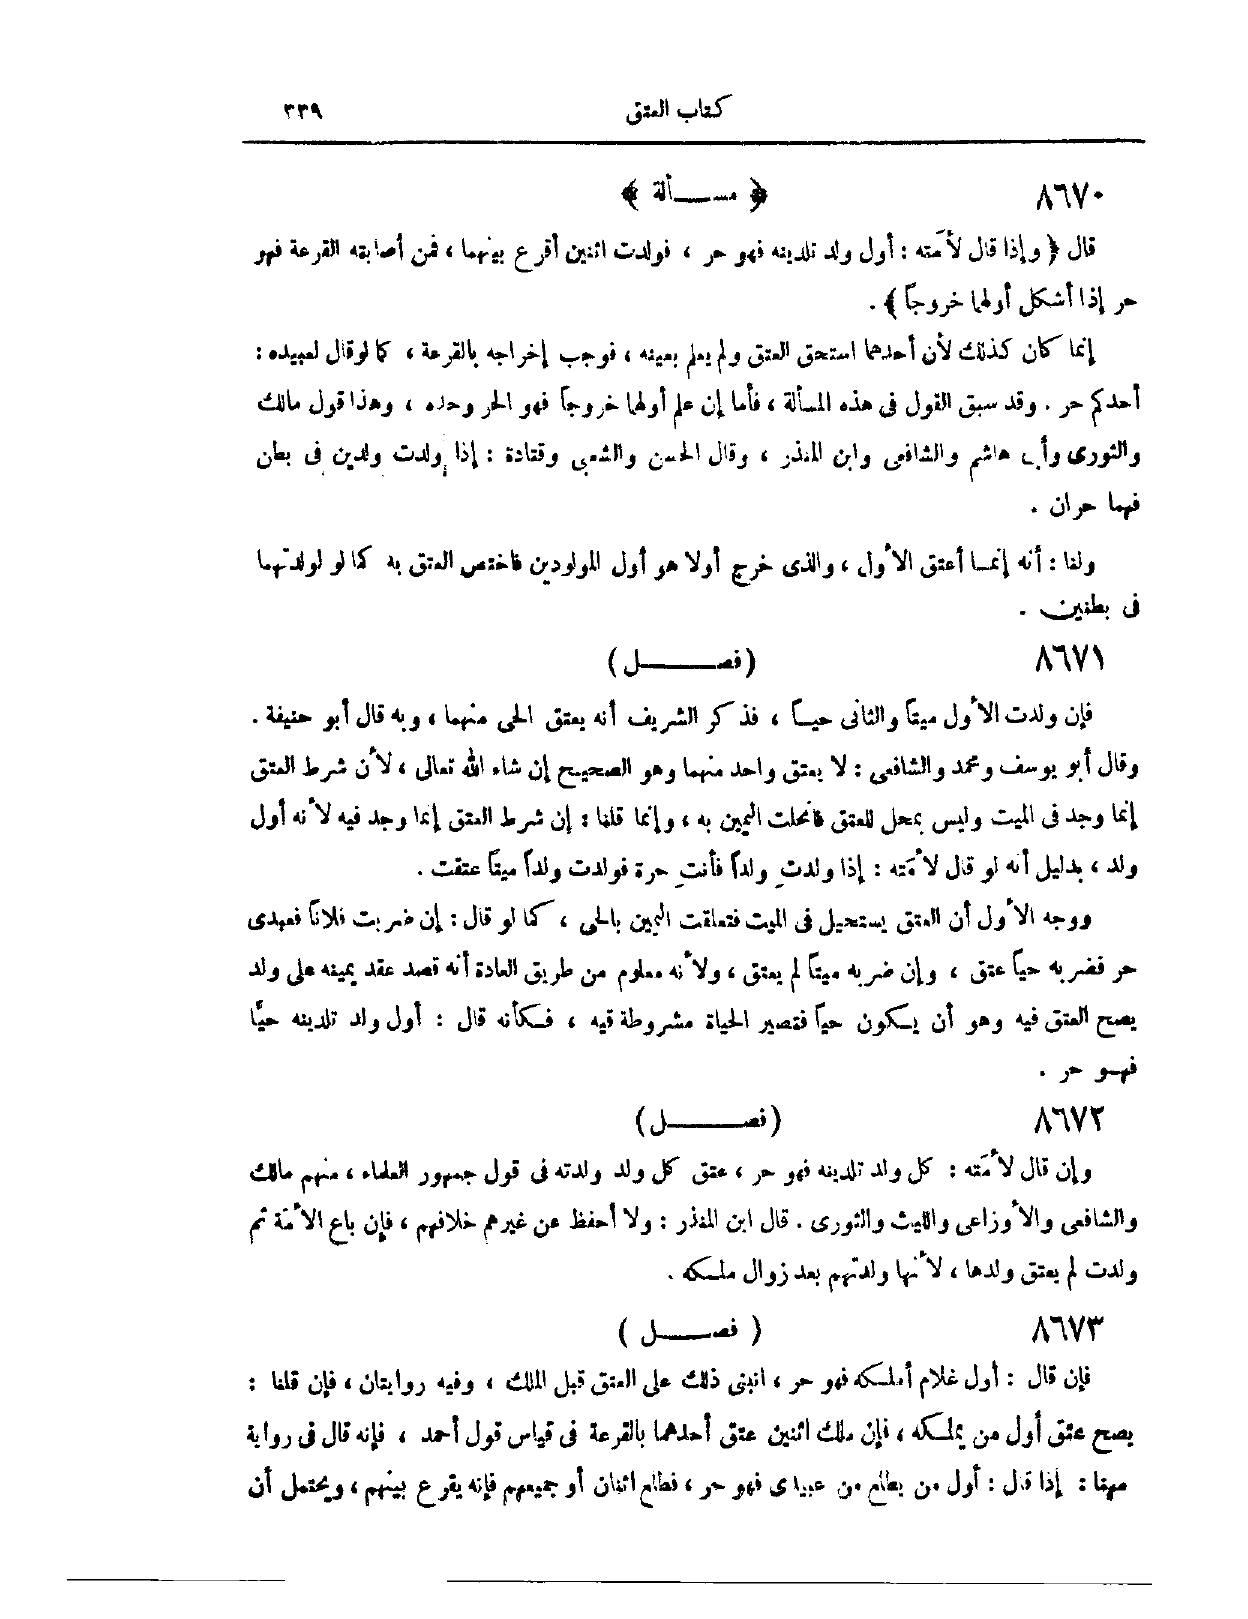 كتاب العتق ٣٣٩
٨٦٧٠ ﴿ مسـألة ﴾
قال ﴿ وإذا قال لأمَته : أول ولد تلدينه فهو حر ، فولدت اثنين أقرع بينهما ، فمن أصابته القرعة فهو
حر إذا أشكل أولهما خروجاً ﴾ .
إنما كان كذلك لأن أحدهما استحق العتق ولم يعلم بعينه ، فوجب إخراجه بالقرعة ، كما لو قال لعبيده :
أحدكم حر . وقد سبق القول فى هذه المسألة ، فأما إن علم أولهما خروجاً فهو الحر وحده ، وهذا قول مالك
والثورى وأبى هاشم والشافعى وابن المنذر ، وقال الحسن والشعبى وقتادة : إذا ولدت ولدين فى بطن
فهما حران .
ولنا : أنه إنمـا أعتق الأول ، والذى خرج أولا هو أول المولودين فاختص العتق به كما لو لولدتهما
فى بطنين .
٨٦٧١ ( فصـــل )
فإن ولدت الأول ميتاً والثانى حيـاً ، فذكر الشريف أنه يعتق الحى منهما ، وبه قال أبو حنيفة .
وقال أبو يوسف ومحمد والشافعى : لا يعتق واحد منهما وهو الصحيح إن شاء الله تعالى ، لأن شرط العتق
إنما وجد فى الميت وليس بمحل للعتق فانحلت اليمين به ، وإنما قلنا : إن شرط العتق إنما وجد فيه لأنه أول
ولد ، بدليل أنه لو قال لأمَته : إذا ولدتِ ولداً فأنتِ حرة فولدت ولداً ميتاً عتقت .
ووجه الأول أن العتق يستحيل فى الميت فتعلقت اليمين بالحى ، كما لو قال : إن ضربت فلاناً فعبدى
حر فضربه حياً عتق ، وإن ضربه ميتاً لم يعتق ، ولأنه معلوم من طريق العادة أنه قصد عقد يمينه على ولد
يصح العتق فيه وهو أن يكون حياً فتصير الحياة مشروطة فيه ، فكأنه قال : أول ولد تلدينه حيًّا
فهـو حر .
٨٦٧٢ ( فصـــل )
وإن قال لأمَته : كل ولد تلدينه فهو حر ، عتق كل ولد ولدته فى قول جمهور العلماء ، منهم مالك
والشافعى والأوزاعى والليث والثورى . قال ابن المنذر : ولا أحفظ عن غيرهم خلافهم ، فإن باع الأمَة ثم
ولدت لم يعتق ولدها ، لأنها ولدتهم بعد زوال ملـكه .
٨٦٧٣ ( فصـــل )
فإن قال : أول غلام أملـكه فهو حر ، انبنى ذلك على العتق قبل الملك ، وفيه روايتان ، فإن قلنا :
يصح عتق أول من يملـكه ، فإن ملك اثنين عتق أحدهما بالقرعة فى قياس قول أحمد ، فإنه قال فى رواية
مهنا : إذا قال : أول من يطلع من عبيدى فهو حر ، فطلع اثنان أو جميعهم فإنه يقرع بينهم ، ويحتمل أن